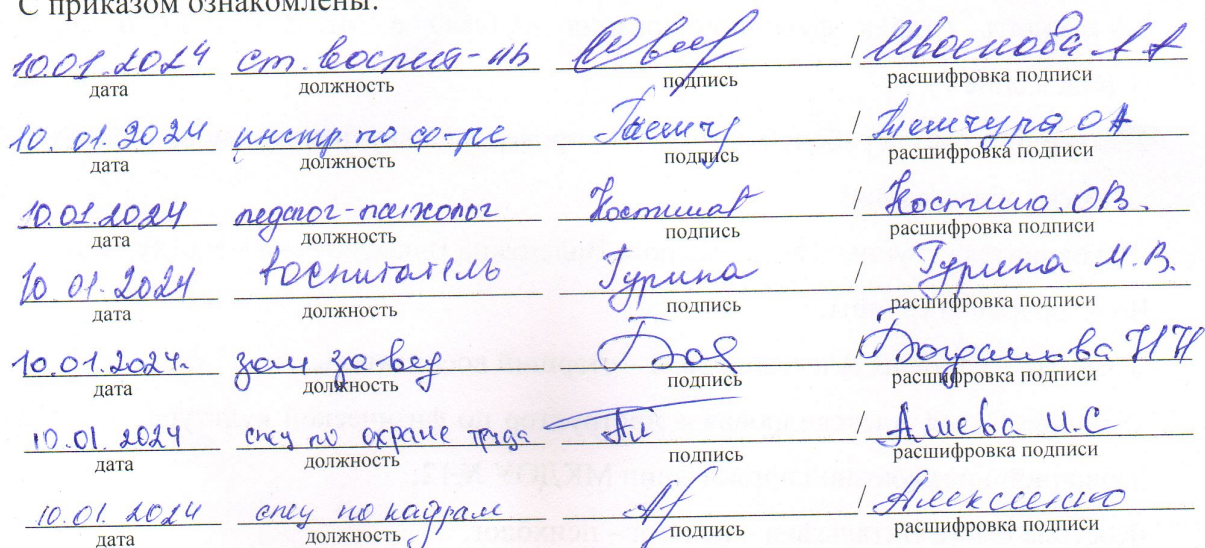 С приказом ознакомлены:
10.01.2024 ст. воспит-ль /
дата должность подпись расшифровка подписи
10.01.2024 инстр. по ф-ре /
дата должность подпись расшифровка подписи
10.01.2024 педагог-психолог Костина / Костина. О.В.
дата должность подпись расшифровка подписи
10.01.2024 воспитатель Гурина / Гурина М.В.
дата должность подпись расшифровка подписи
10.01.2024г. зам зав вед Бог / Богданова Н Н
дата должность подпись расшифровка подписи
10.01.2024 спец по охране труда / И.С
дата должность подпись расшифровка подписи
10.01.2024 спец по кадрам / Алексеенко
дата должность подпись расшифровка подписи